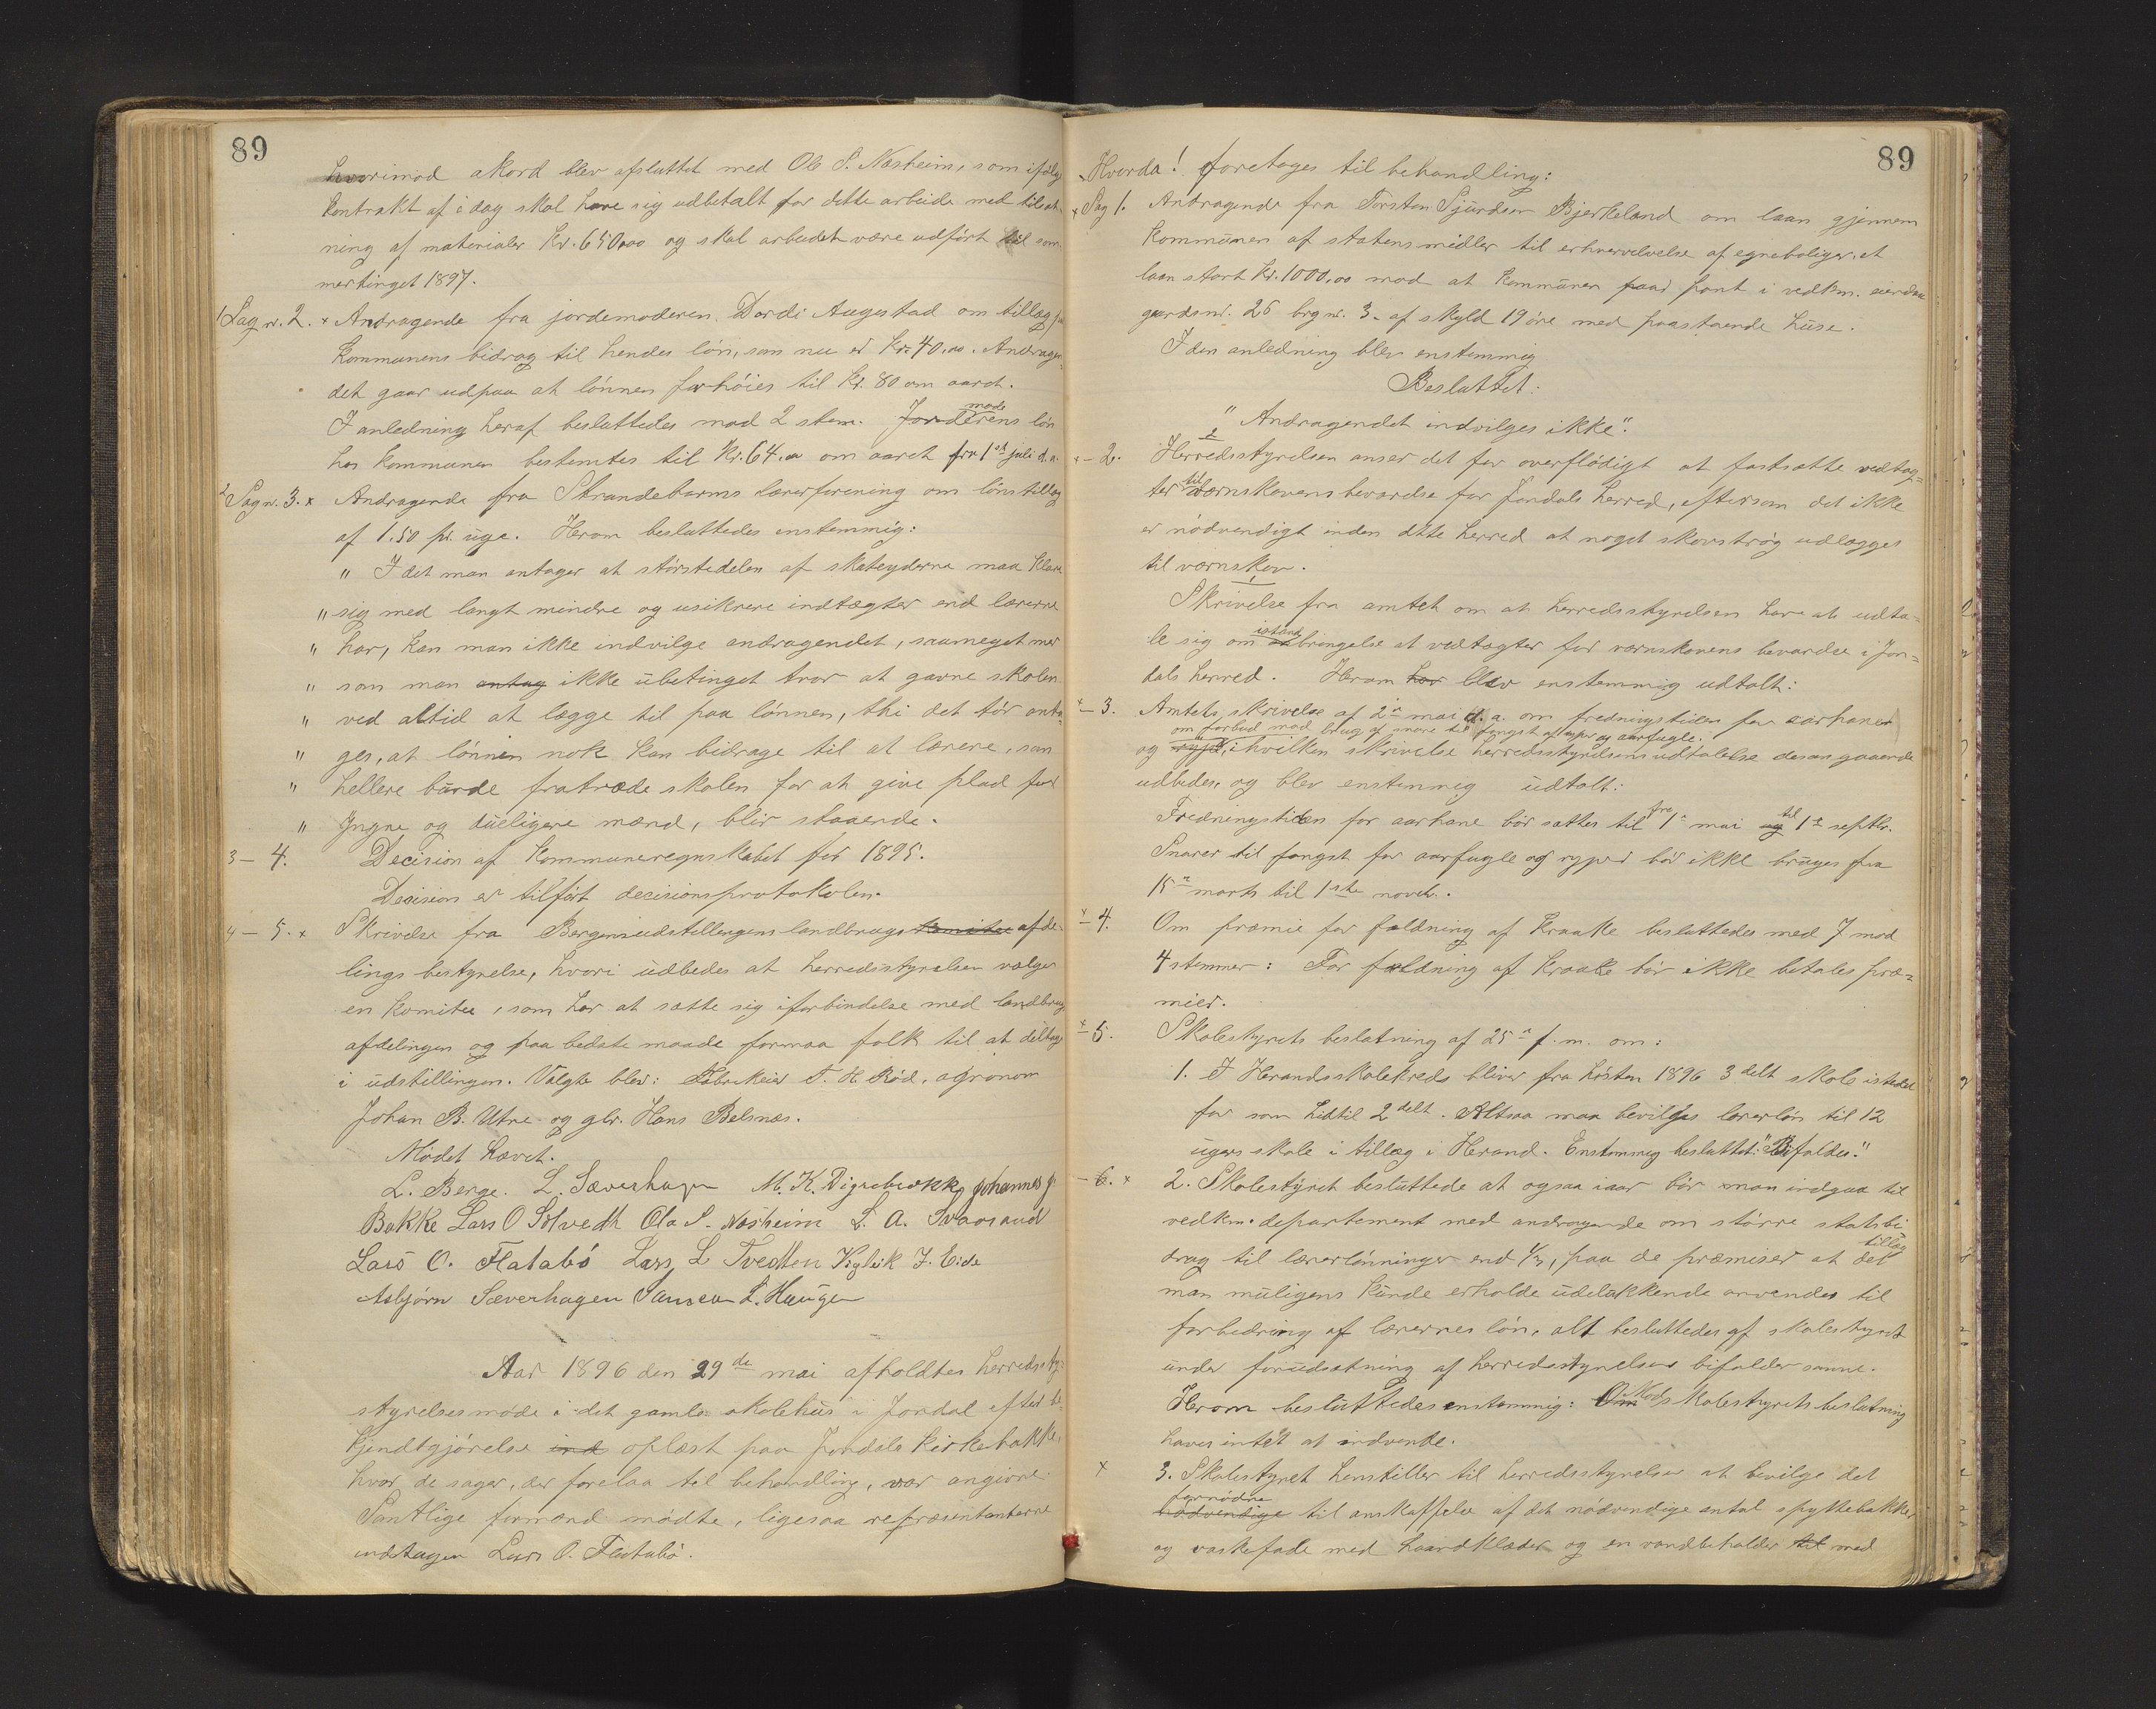 89
hvorimod akord blev afsluttet med Ole S. Næsheim, som ifølge
kontrakt af i dag skal have sig udbetalt for dette arbeide med tilsat-
ning af materialer Kr. 650,00 og skal arbeidet være udført til som
mertinget 1897.
Sag nr. 2. x Andragende fra jordemoderen Dordi Augestad om tillæg
Kommunens bidrag til hendes løn, som nu er Kr. 40,00. Andragen-
det gaar udpaa at lønnen forhøies til Kr. 80 om aaret.
I anledning heraf besluttedes mod 2 stem. Jordemoderens løn
hos kommunen bestemtes til Kr. 64.00 om aaret fra 1st juli d. a.
2 Sag nr. 3. x Andragende fra Strandebarms lærerforening om lønstillæg
af 1.50 pr. uge. Herom besluttedes enstemmig:
" I det man antager at størstedelen af skateyderne maa klare
" sig med langt mindre og usikrere indtægter end lærerne
" har, kan man ikke indvilge andragendet, saameget mer
" som man antag ikke ubetinget tror at gavne skolen
" ved altid at lægge til paa lønnen, thi det tør anta-
" ges, at lønnen nok kan bidrage til at lærere, som
" hellere burde fratræde skolen for at give plad for
" Yngre og dueligere mænd, blir staaende.
3 — 4. Decision af Kommuneregnskabet for 1895.
Decision er tilført decisionsprotokolen.
4 — 5. x Skrivelse fra Bergensudstillingens landbrugs komitee afde-
lings bestyrelse, hvori udbedes at herredsstyrelsen vælger
en komitee, som har at sætte sig i forbindelse med landbrugs
afdelingen og paa bedste maade formaa folk til at deltage
i udstillingen. Valgte blev: Fabrikeier T. H. Rød, agronom
Johan B. Utne og gbr. Hans Belsnæs.
Mødet hævet.
L. Berge. L. Sæverhagen M. K. Digrebrække Johannes J.
Bakke Lars O Solvedt Ola S. Næsheim L. A. Svaasand
Lars O. Flatabø Lars L Tvedten Viglik J. Eide
Asbjørn Sæverhagen Samson L. Hauge
Aar 1896 den 29de mai afholdtes herredssty-
styrelsesmøde i det gamle skolehus i Jondal efter be-
kjendtgjørelse ind oplæst paa Jondals kirkebakke,
hvor de sager, der forelaa til behandling, var angivne.
Samtlige formænd mødte, ligesaa repræsentanterne
undtagen Lars O. Flatabø.
89
Hvorda! foretages til behandling:
x Sag 1. Andragende fra Torsten Sjurdsen Bjerkeland om laan gjennem
kommunen af statens midler til erhvervelvelse af egneboliger, et
laan stort Kr. 1000,00 mod at kommunen faar pant i vedkm. eiendom
gaardsnr. 26 brg nr. 3. af skyld 19 øre med paastaaende huse.
I den anledning blev enstemmig
Besluttet:
" Andragendet indvilges ikke".
2
x – 2. Herredsstyrelsen anser det for overflødigt at fastsætte vedtæg-
ter til værnskovens bevarelse for Jondals herred, eftersom det ikke
er nødvendigt inden dette herred at noget skovstrøg udlægges
til værnskov.
1
Skrivelse fra amtet om at herredsstyrelsen har at udta-
le sig om istand anbringelse at vedtægter for værnskovens bevarelse i Jon-
dals herred. Herom har blev enstemmig udtalt:
x – 3. Amtets skrivelse af 2n mai d. a. om fredningstiden for aarhaner
om forbud mod brug af snare til fangst af ryper og aarfugle.
og ryper, i hvilken skrivelse herredsstyrelsens udtalelse desangaaende
udbedes, og blev enstemmig udtalt:
Fredningstiden for aarhane bør sættes til fra 1n mai og til 1ste septbr.
Snarer til fangst for aarfugle og ryper bør ikke bruges fra
15n marts til 1ste noveb.
x – 4. Om præmie for fældning af kraake besluttedes med 7 mod
4 stemmer: For fældning af kraake bør ikke betales præ-
mier.
x – 5. Skolestyrets beslutning af 25n f. m. om:
1. I Herandsskolekreds bliver fra høsten 1896 3delt skole istedet
for som hidtil 2delt. Altsaa maa bevilges lærerløn til 12
ugers skole i tillæg i Herand. Enstemmig besluttet: "Bifaldes."
– 6. x 2. Skolestyret besluttede at ogsaa iaar bør man indgaa til
vedkm. departement med andragende om større statsbi
drag til lærerlønninger end 1/3, paa de præmiser at det tillæg
man muligens kunde erholde udelukkende anvendes til
forbedring af lærernes løn, alt besluttedes af skolestyret
under forudsætning af herredsstyrelsens bifalder samme.
Herom besluttedes enstemmig: Om Mod skolestyrets beslutning
haves intet at indvende.
x 3. Skolestyret henstiller til herredsstyrelsen at bevilge det
fornødne
nødvendige til anskaffelse af det nødvendige antal spyttebakker
og vaskefade med haandklæder og en vandbeholder til med